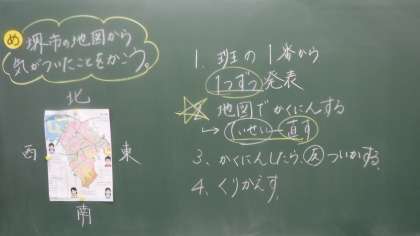 め 堺市の地図から
気がついたことをかこう。
北
西
東
南
1. 班の1番から
1つずつ発表
2 地図でかくにんする
→
直す
3、かくにんしたら、友 ついかする。
4、くりかえす